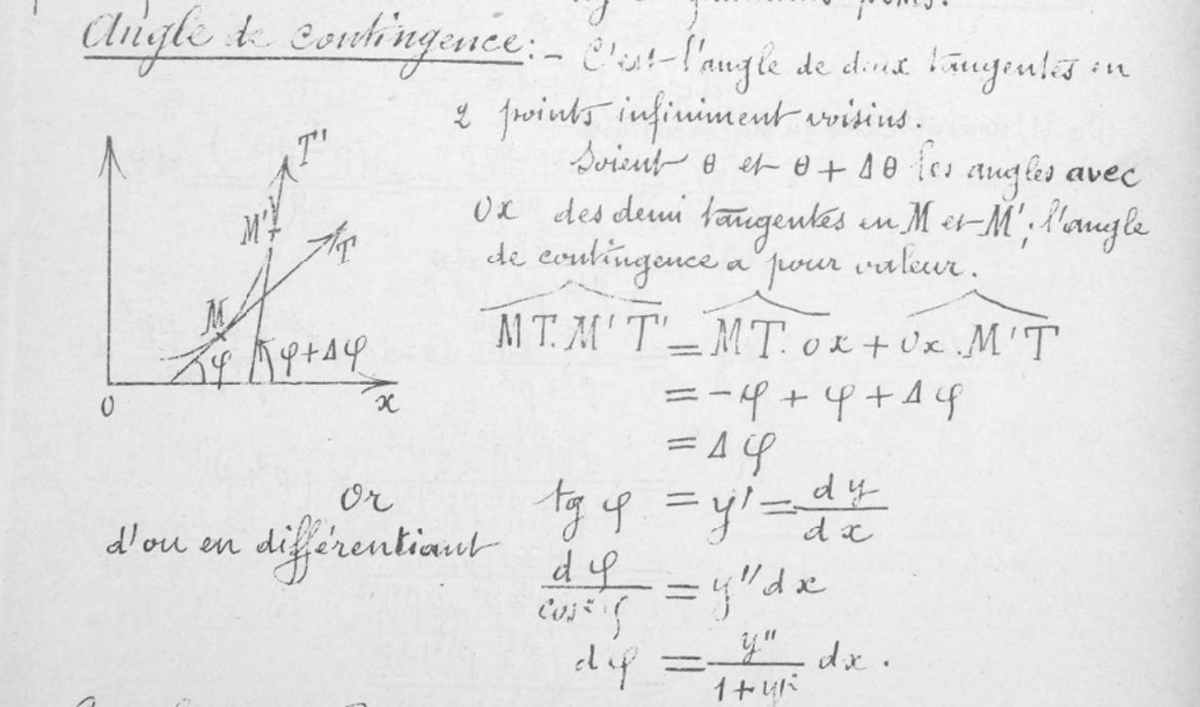 Angle de contingence :- C'est l'angle de deux tangentes en
2 points infiniment voisins.
Soient θ et θ + Δθ les angles avec
Ox des demi tangentes en M et M'; l'angle
de contingence a pour valeur.
T'
M'
T
M
φ
φ+Δφ
O
x
MT.M'T' = MT.ox + Ox.M'T
= -φ + φ + Δφ
= Δφ
or tg φ = y' = dy/dx
d'ou en différentiant
dφ/cos²φ = y''dx
dφ = y''/1+y'² dx.